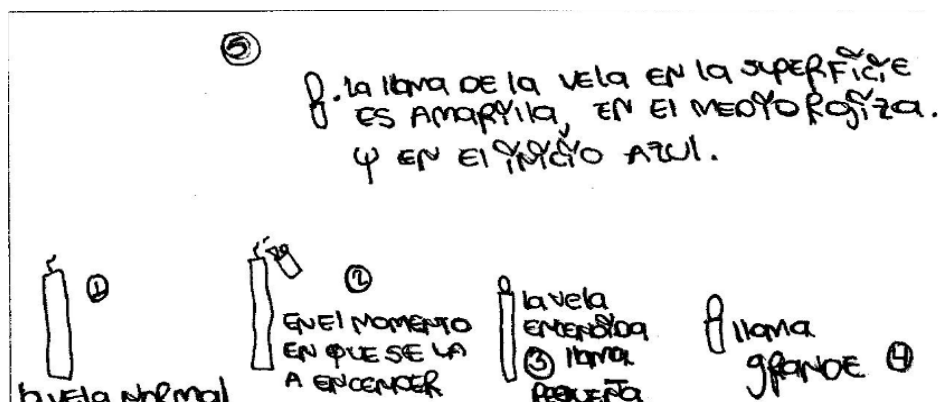 ⑤
la llama DE la VELA EN la SUPERFICIE
ES AMARYlla, EN El MEDYO ROJIZA.
Y EN El INICIO AZUL.
①
la VEla NORMAl
②
EN El MOMENTO
EN QUE SE LA
A ENCENDER
la vela
ENCENDIDA
③ llama
PEQUEÑA
llama
gRANDE ④